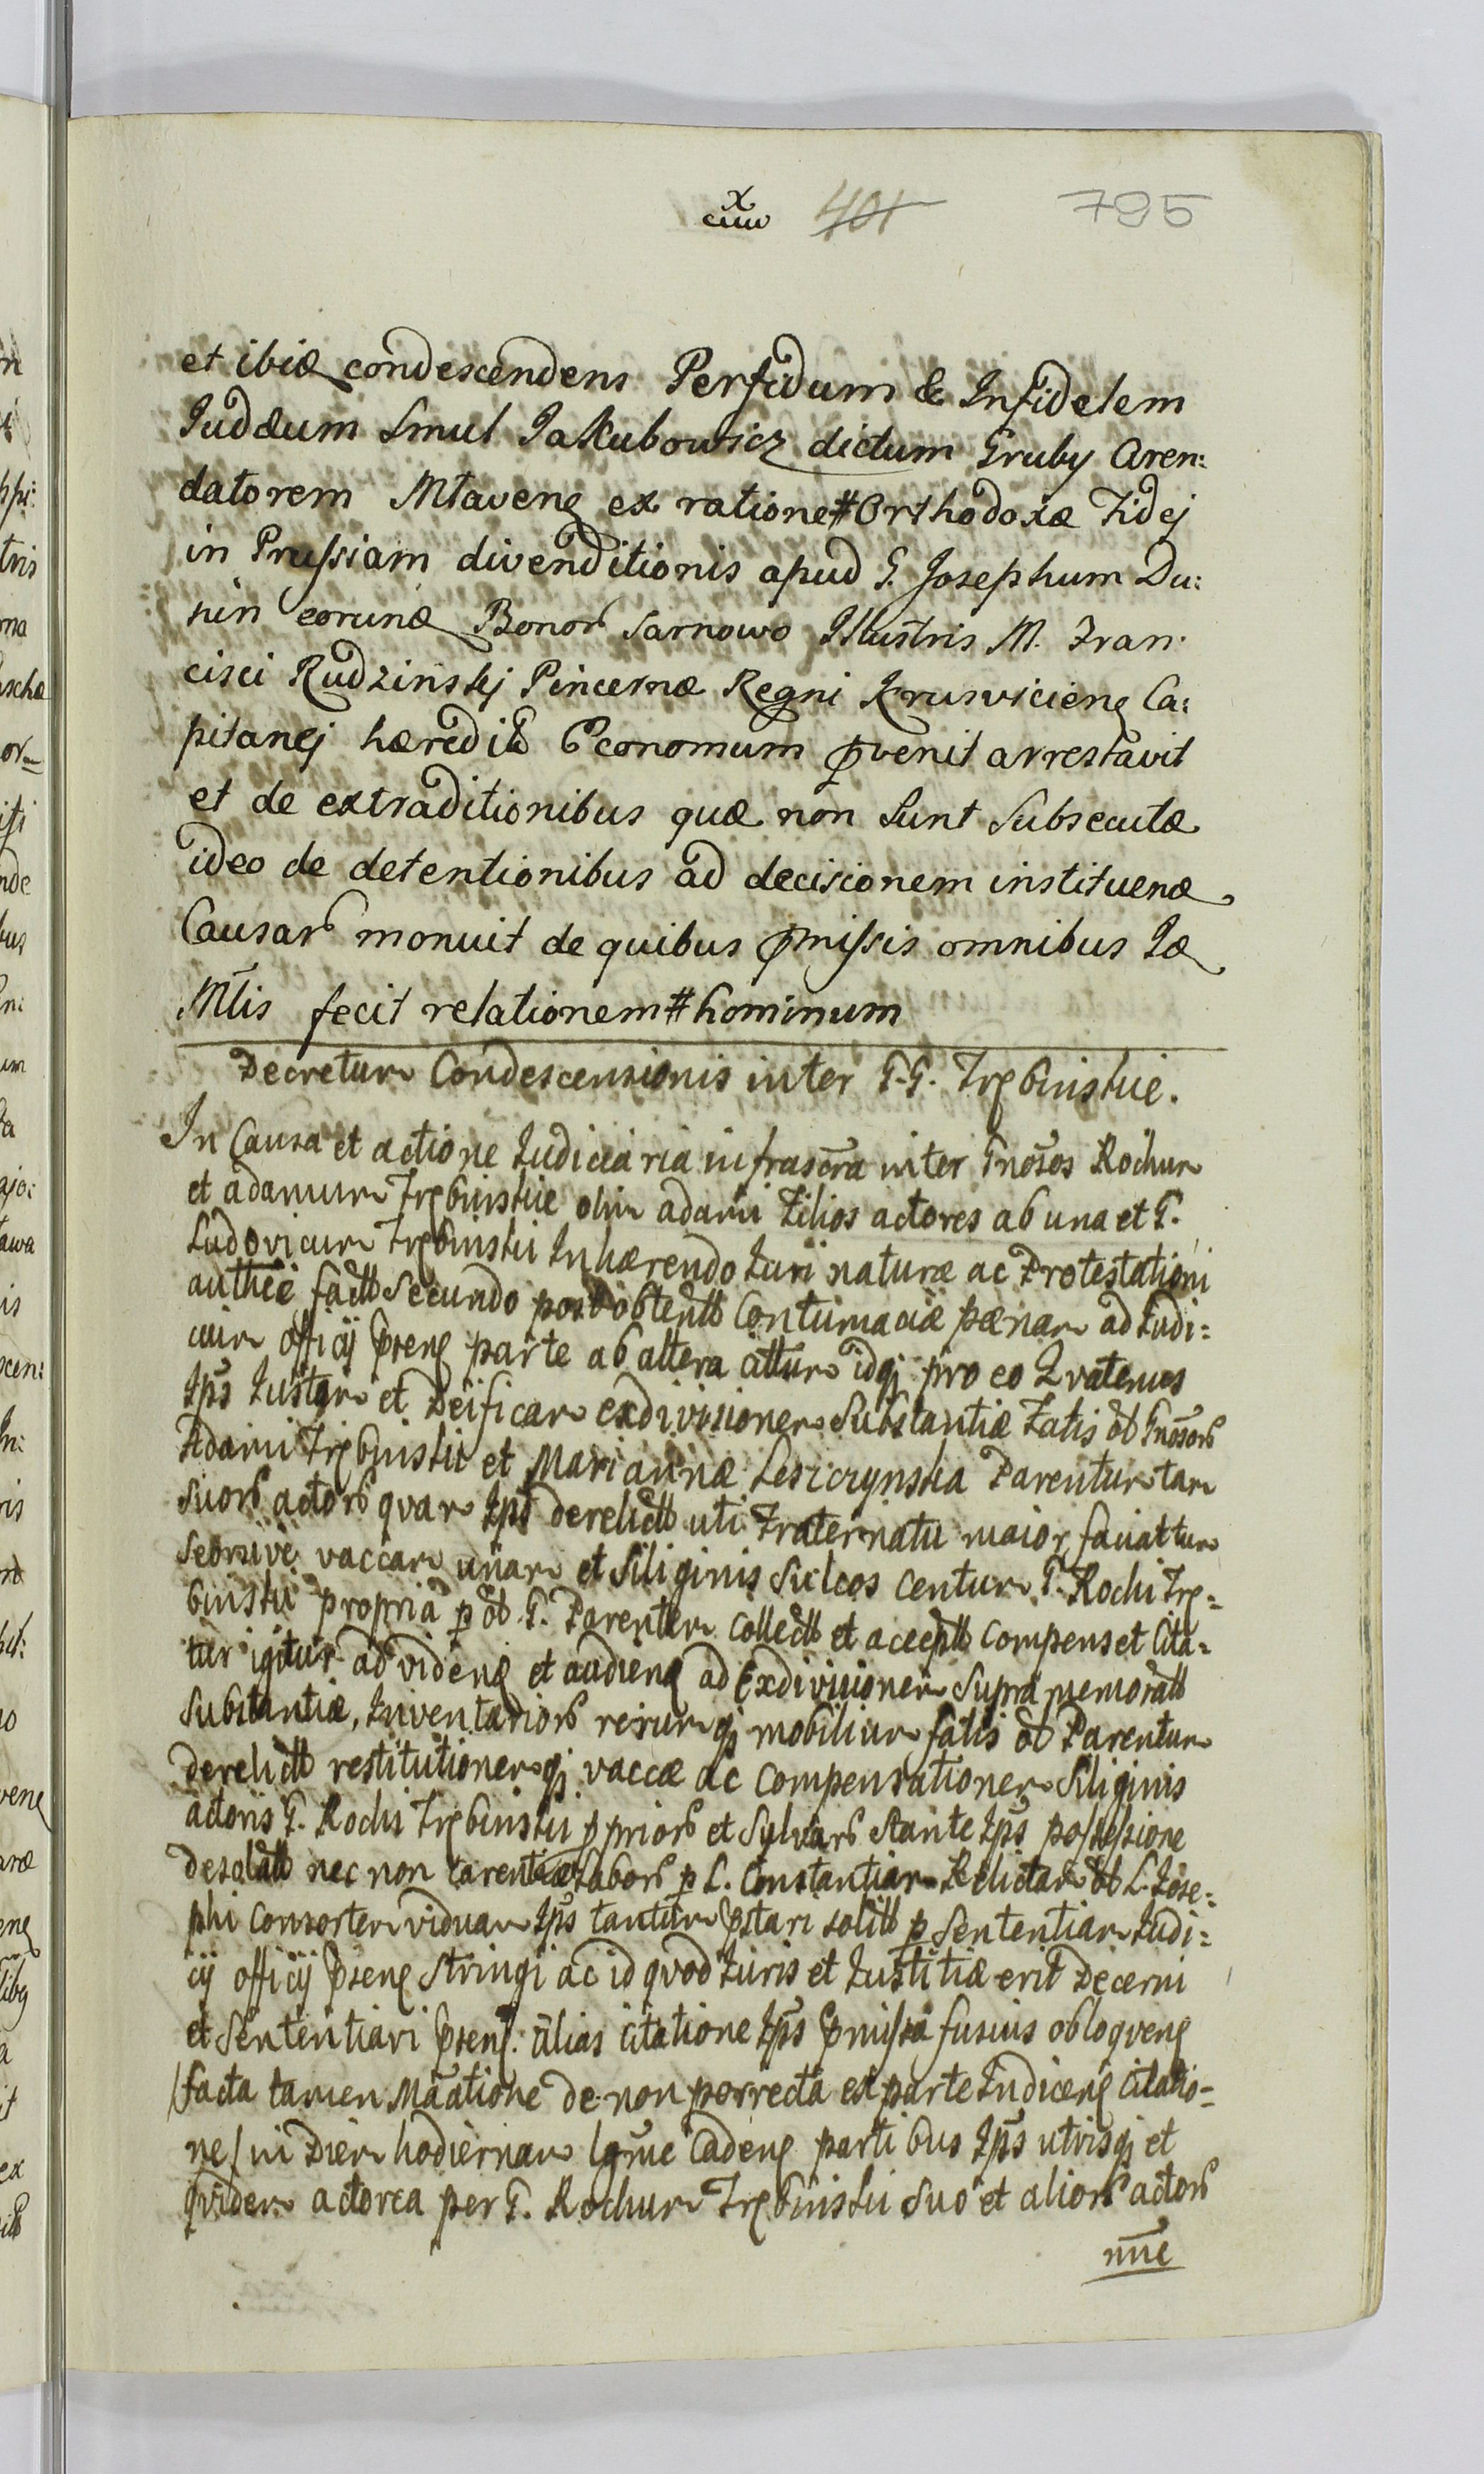 795
401
et ibid condescendens Perfidum & Infidelem
Judæum Smul Jakubowicz dictum Gruby Aren:
datorem Mlaven ex ratione # Orthodoxæ Fidej
in Prussiam divenditionis apud G. Josephum Du:
nin eorund Bonor Sarnowo Illustris M. Fran:
cisci Rudzinskj Pincernæ Regni Krusvicien Ca:
pitanej hæredit Œconomum pvenit arrestavit
et de extraditionibus quæ non sunt subsecutæ
ideo de detentionibus ad decisionem instituend
Causar monuit de quibus pmissis omnibus Jd
Mlis fecit relationem # hominum
Decretum Condescensionis inter G.G. Trębinskie.
In Causa et actione Judiciaria infrascra inter Gnosos Rochum
et Adamum Trębinskie olim Adami Filios actores ab una et G.
Ludovicum Trębinski Inhærendo Juri naturæ ac Protestationi
authce fact Secundo post obtent Contumaciæ pænam ad Judi:
cium officij psens parte ab altera attum idqj pro eo Qvatenus
Ips Justam et Deificam exdivisionem Substantiæ Fatis ol Gnosor
Adami Trębinskie et Mariannæ Lesiczynska Parentum tam
Suor actor qvam Ips derelict uti Frater natu maior faciat tum
Seorsive vaccam unam et Siliginis Sulcos centum G. Rochi Trę=
binski propria p ol G. Parentem collect et accept compenset Cita=
tur igitur ad viden et audien ad Exdivisionem Supra memorat
Substantiæ, Inventarior rerumqj mobilium fatis ol Parentum
derelict restitutionemqj vaccæ ac compensationem Siliginis
actoris G. Rochi Trębinski pprior et Sylvar stante Ips possessione
desolat nec non carentiæ Labor p L. Constantiam Relictam ol L. Jose=
phi consortem viduam Ips tantum pstari solit p Sententiam Judi=
cij officij psens Stringi ac id qvod Juris et Justitiæ erit Decerni
et Sententiari psens. alias citatione Ips pmissa fusius obloqven
/facta tamen Maatione de non porrecta ex parte Judicen citatio=
ne/ in Diem hodiernam lgme Caden partibus Ips utrisqj et
qvidem actorea per G. Rochum Trębinski Suo et alior actor
nne